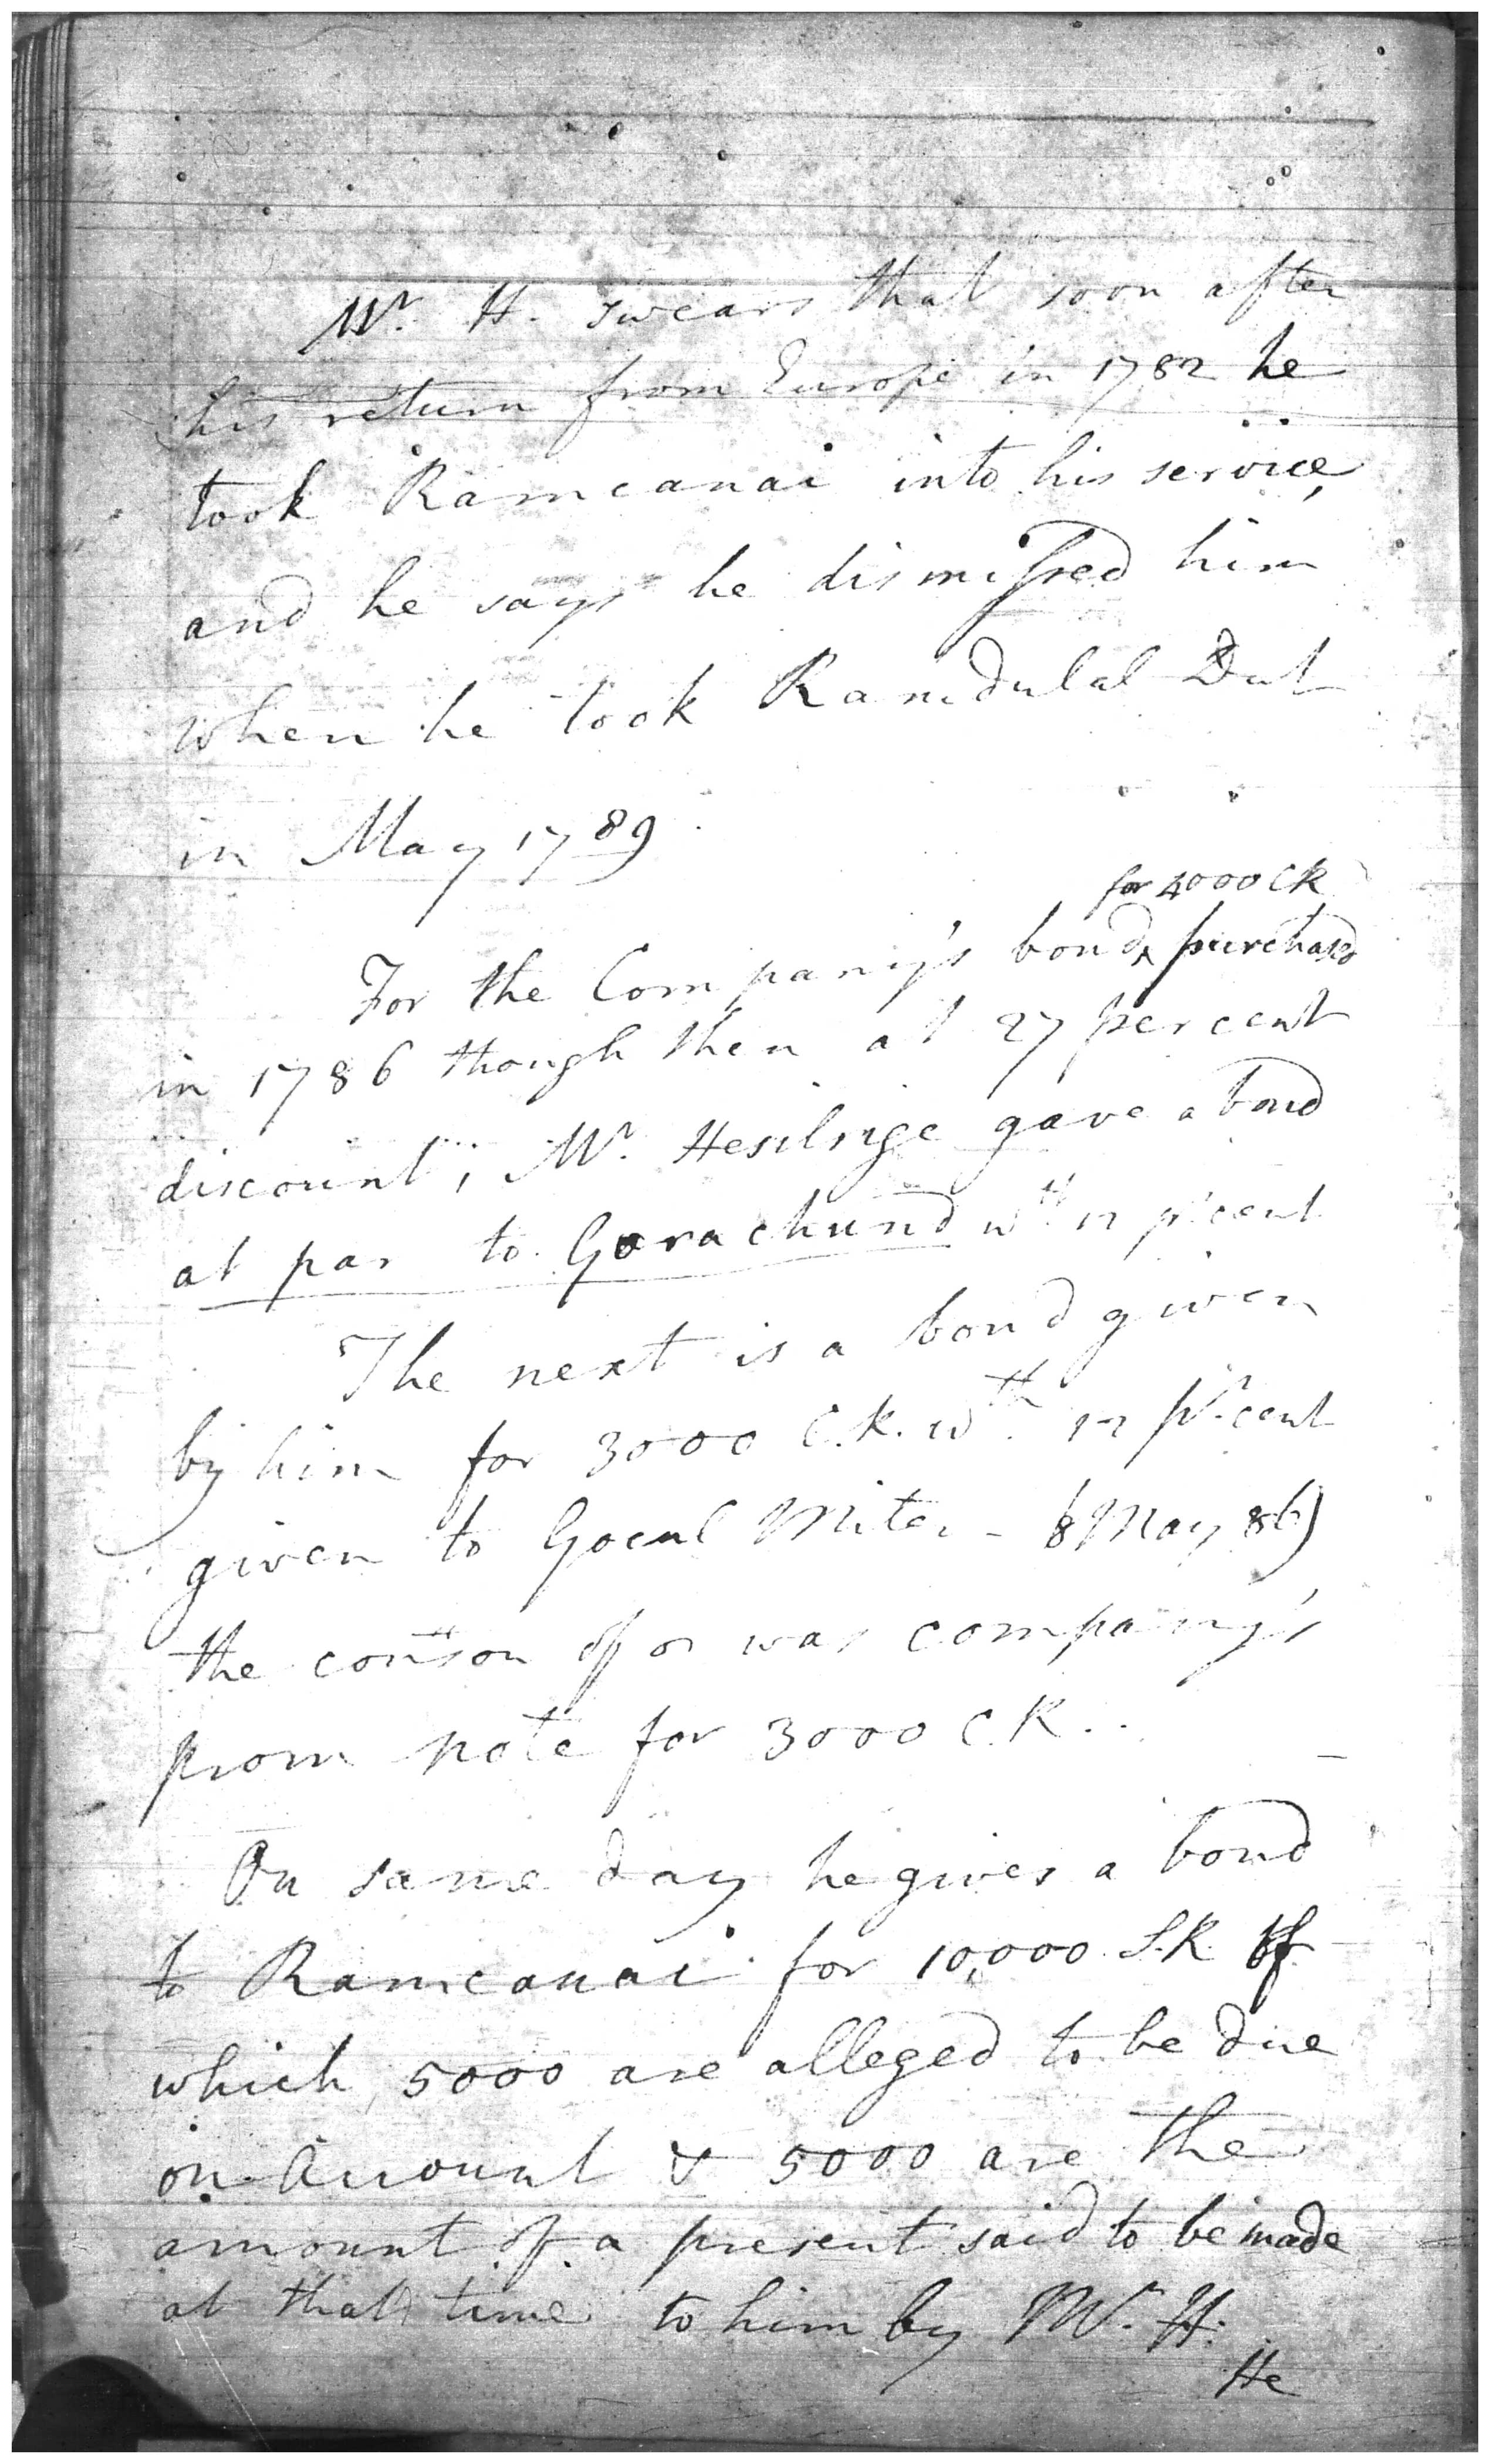 Mr. H. swears that soon after
his return from Europe in 1782 he
took Ramcanai into his service,
and he says he dismissed him
when he took Ramdulal Dut
in May 1789.
for 4000 CR
For the Company's bond ‸ purchased
in 1786 though then at 27 per cent
discount, Mr. Hesilrige gave a bond
at par to Gorachund wth. 12 pr cent
The next is a bond given
by him for 3000 C.R. wth. 12 pr. cent
given to Gocul Miter - (8 May 86)
the conson of or was company's
prom note for 3000 C.R..
On same day he gives a bond
to Ramcanai for 10,000 S.R. of
which 5000 are alleged to be due
on Account & 5000 are the
amount of a present said to be made
at that time to him by Mr. H.
He